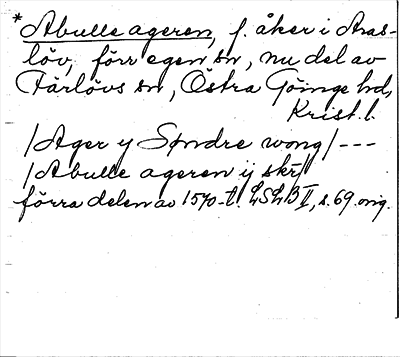 * Abulle ageren, f. åker i Aras-
löv, förr egen sn, nu del av
Färlövs sn, Östra Göinge hd,
Krist. l.
/Ager y Søndre wong/ ---
/Abulle ageren ij skr/
förra delen av 1570-t. LSLB II, s. 69 orig.